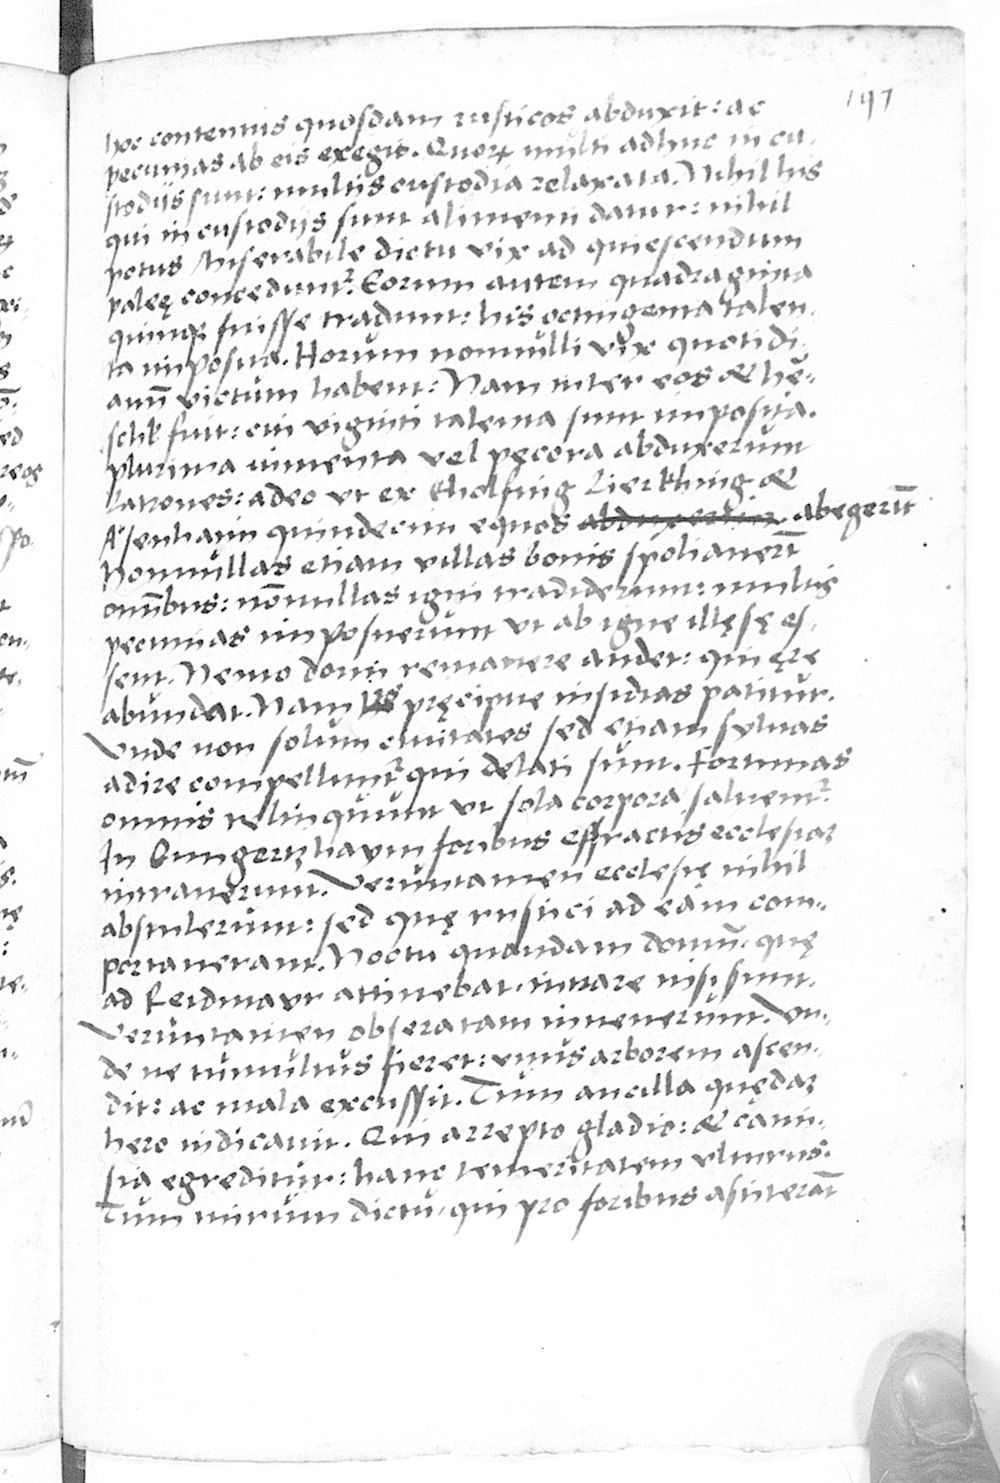 197
hoc contentus quosdam rusticos abduxit: ac
pecunias ab eis exegit. Quorꝝ multi adhuc in cu-
stodijs sunt: multis custodia relaxata. Nihil his
qui in custodijs sunt alimenti datur: nihil
potus Miserabile dictu vix ad quiescendum
paleę conceduntr̃. Eorum autem quadraginta
quinqꝫ fuisse tradunt: his octingenta talen-
ta imposita. Horum nonnulli vix quotidi-
anũ victum habent: Nam inter eos & he-
fuit: cui viginti talenta sunt imposita.
plurima iumenta vel pecora abduxerunt
Latrones: adeo vt ex Kholfing Lierkhing &
Asenhaim quindecim equos abduxerunt abegerũt
Nonnullas etiam villas bonis spoliauerũt
omĩbus: nõnullas igni tradiderunt: multis
pecunias imposuerunt vt ab igne illęsę es-
sent. Nemo domi remanere audet: qui ęre
abundat. Nam is pręcipue insidias patitur.
Vnde non solum ciuitates sed etiam syluas
adire compelluntr̃ qui delati sunt. Fortunas
omnis relinquunt vt sola corpora saluentr̃.
In Gungertzhaym foribus effractis ecclesiaꝫ
intrauerunt. Veruntamen ecclesię nihil
abstulerunt: sed quę rustici ad eam com-
portauerant. Noctu quandam domũ. quę
ad Reidmayr attinebat. intrare nisi sunt.
Veruntamen obseratam inuenerunt. Vn-
de ne tumultus fieret: vnus arborem ascen-
dit: ac mala excussit. Tum ancilla quędaꝫ
hero indicauit. Qui arrepto gladio: & cami-
sia egreditur: hanc temeritatem vlturus.
Tum mirum dictu, qui pro foribus astiterãt